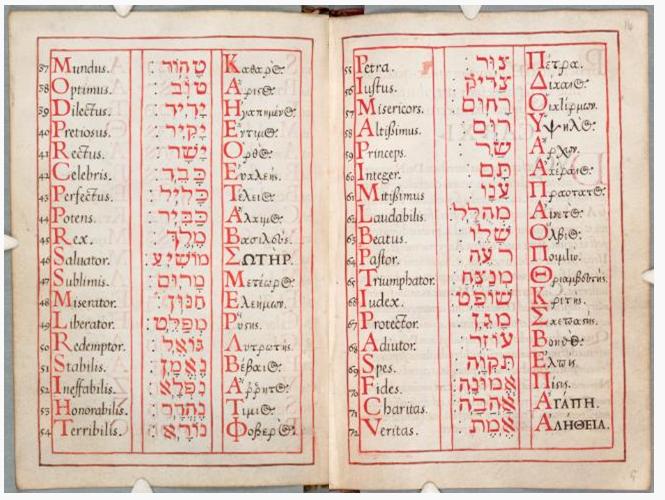 37 Mundus. טָהוֹר: Καθαρὸς.
38 Optimus. טוֹב: Ἄριστος.
39 Dilectus. יָדִיד: Ἠγαπημένος.
40 Pretiosus. יָקִיר: Ἔντιμος.
41 Rectus. יָשָׁר: Ὀρθός.
42 Celebris. כָּבֵד: Εὐκλεής.
43 Perfectus. כָּלִיל: Τέλειος.
44 Potens. כַּבִּיר: Ἄλκιμος.
45 Rex. מֶלֶךְ: Βασιλεύς.
46 Saluator. מוֹשִׁיעַ: ΣΩΤΗΡ.
47 Sublimis. מָרוֹם: Μετέωρος.
48 Miserator. חַנּוּן: Ἐλεημων.
49 Liberator. מְפַלֵּט: Ῥύσης.
50 Redemptor. גּוֹאֵל: Λυτρωτής.
51 Stabilis. נֶאֱמָן: Βέβαιος.
52 Ineffabilis. נִפְלָא: Ἄρρητος.
53 Honorabilis. נֶהְדָּר: Τίμιος.
54 Terribilis. נוֹרָא: Φοβερός.
14
55 Petra. צוּר: Πέτρα.
56 Iustus. צַדִּיק: Δίκαιος.
57 Misericors. רַחוּם: Οἰκτίρμων.
58 Altissimus. רוּם: Ὑψηλός.
59 Princeps. שַׂר: Ἄρχων.
60 Integer. תָּם: Ἀκέραιος.
61 Mitissimus עָנָו: Πραότατος.
62 Laudabilis. מְהֻלָּל: Αἰνετός.
63 Beatus. שָׁלֵו: Ὄλβιος.
64 Pastor. רֹעֶה: Ποιμὴν.
65 Triumphator. מְנַצֵּחַ: Θριαμβευτής.
66 Iudex. שׁוֹפֵט: Κριτής.
67 Protector. מָגֵן: Σκεπαστής.
68 Adiutor. עוֹזֵר: Βοηθός.
69 Spes. תִּקְוָה: Ἐλπις.
70 Fides. אֱמוּנָה: Πίστις.
71 Charitas. אַהֲבָה: ΑΓΑΠΗ.
72 Veritas. אֱמֶת: ΑΛΗΘΕΙΑ.